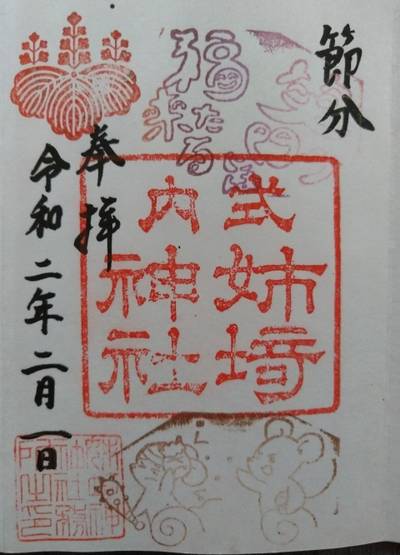 節分
福来たる
笑門
奉拝
式内
姉埼神社
令和二年二月一日